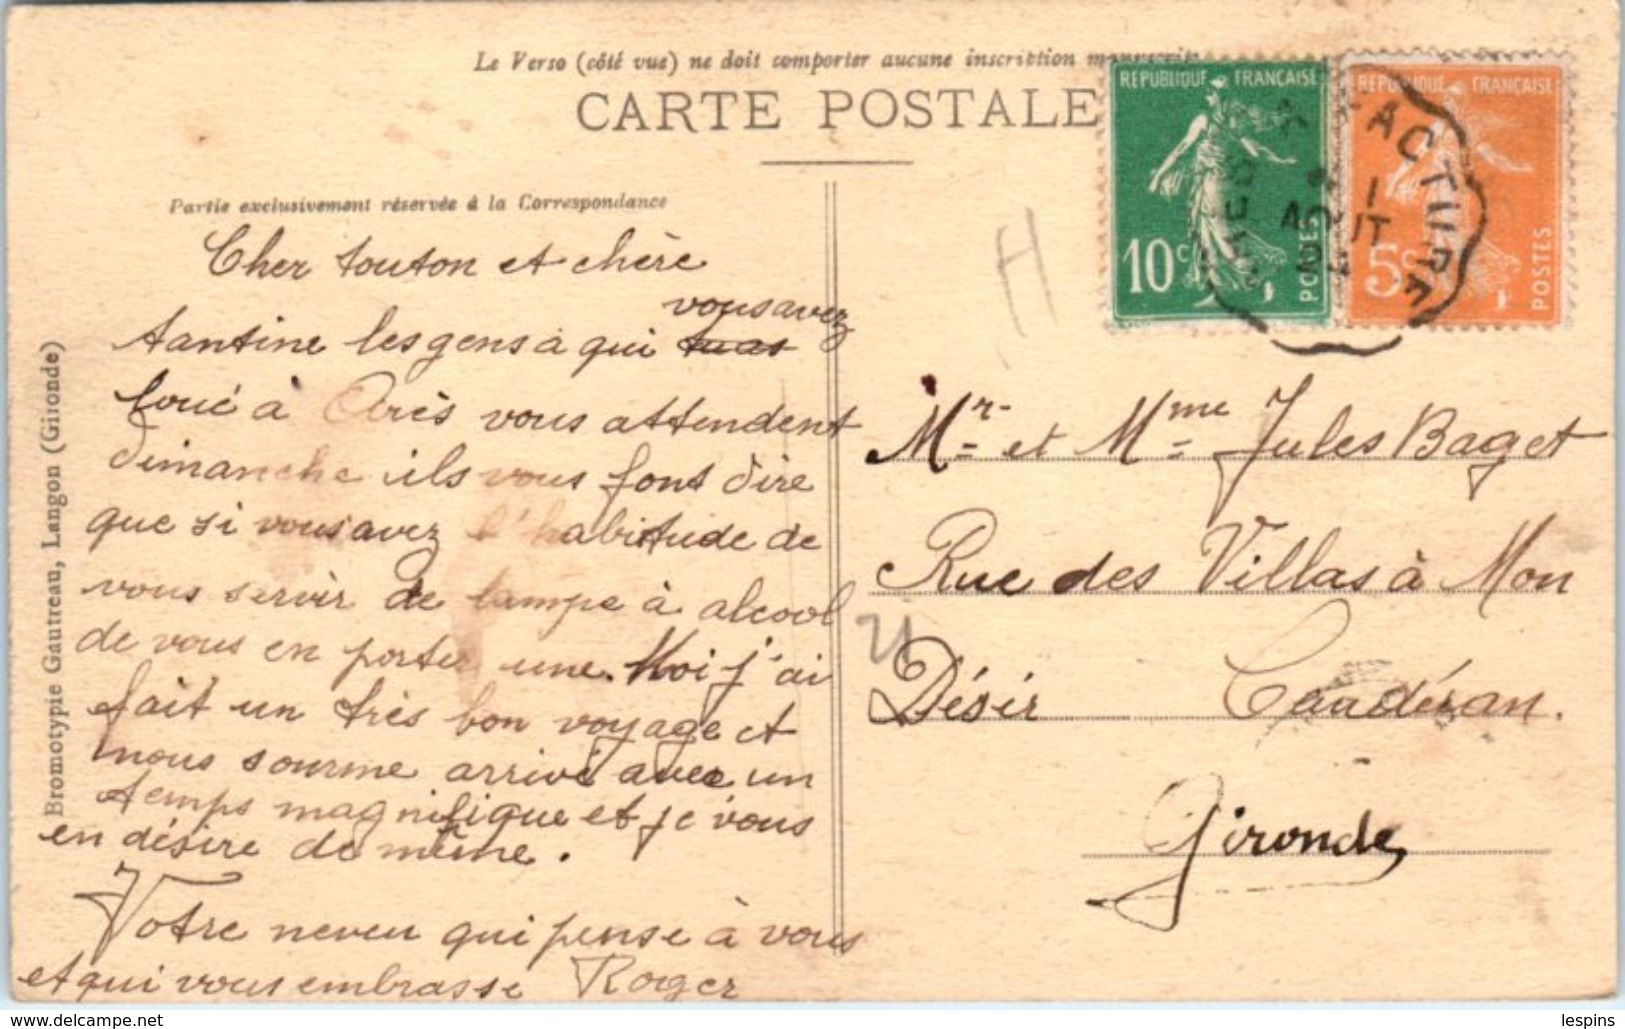 Le Verso (côté vue) ne doit comporter aucune inscription manuscrite
CARTE POSTALE
Partie exclusivement réservée à la Correspondance
REPUBLIQUE FRANÇAISE
10c
POSTES
REPUBLIQUE FRANÇAISE
5c
POSTES
FACTURE
1
AOUT
Cher touton et chère
vous avez
tantine les gens a qui tu as
loué à Arès vous attendent
dimanche ils vous font dire
que si vous avez l'habitude de
vous servir de lampe à alcool
de vous en porter une. Moi j'ai
fait un très bon voyage et
nous somme arrivé avec un
temps magnifique et je vous
en désire de même.
Votre neveu qui pense à vous
et qui vous embrasse Roger
H
Mr et Mme Jules Baget
Rue des Villas à Mon
Désir Caudéran.
Gironde
Bromotypie Gautreau, Langon (Gironde)
delcampe.net
lespins